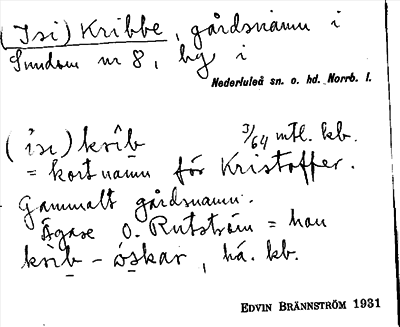 (Isi) Kribbe, gårdsnamn i
Sundom nr 8, hg i
Nederluleå sn. o. hd. Norrb. l.
(ìsi) krîb 3/64 mtl. kb.
= kortnamn för Kristoffer.
Gammalt gårdsnamn.
Ägare O. Rutström = han
krìb - òskar, há. kb.
EDVIN BRÄNNSTRÖM 1931